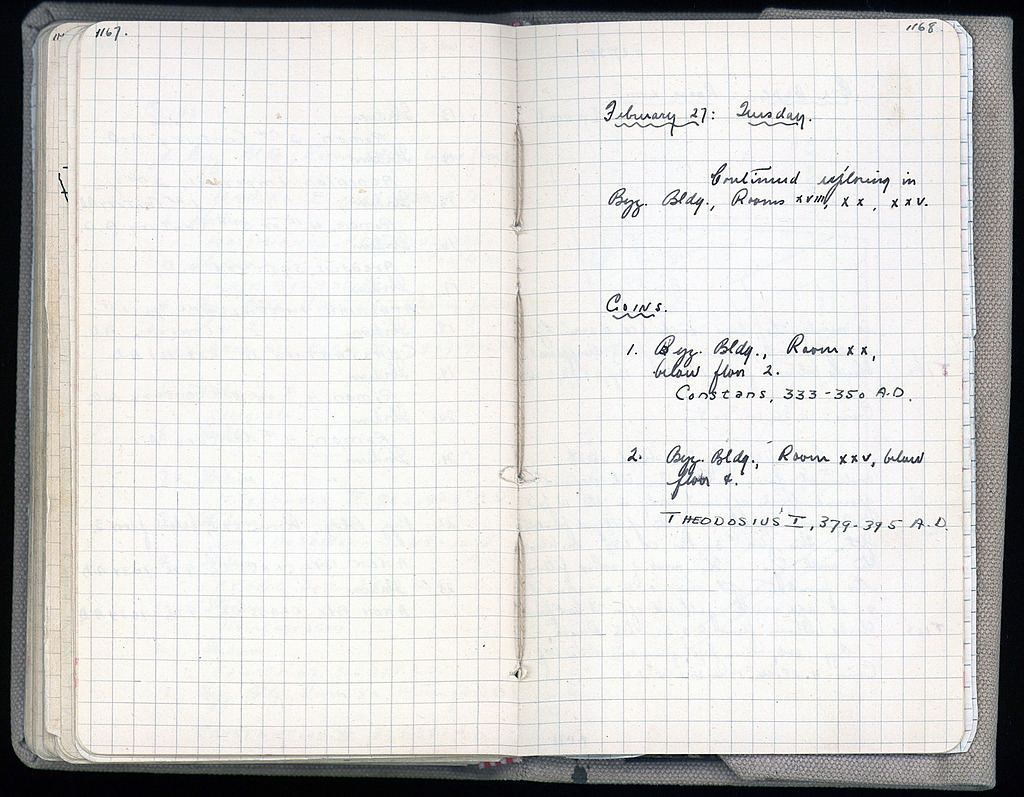 1167.
1168.
February 27: Tuesday.
Continued exploring in
Byz. Bldg., Rooms XVIII, XX, XXV.
COINS.
1. Byz. Bldg., Room XX,
below floor 2.
Constans, 333-350 A.D.
2. Byz. Bldg., Room XXV, below
floor 4.
THEODOSIUS I, 379-395 A.D.